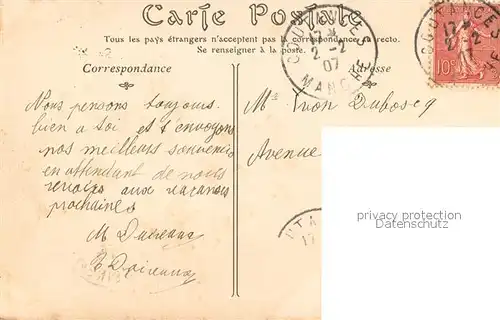 Carte Postale
Tous les pays étrangers n'acceptent pas la correspondance au recto.
Se renseigner à la poste.
Correspondance
Adresse
COUTANCES
17
2-2
07
MANCHE
10c
Nous pensons toujours
bien a toi et t'envoyons
nos meilleurs souvenirs
en attendant de nous
revoir aux vacances
prochaines
M
Mr Yvon Duboscq
Avenue
privacy protection
Datenschutz